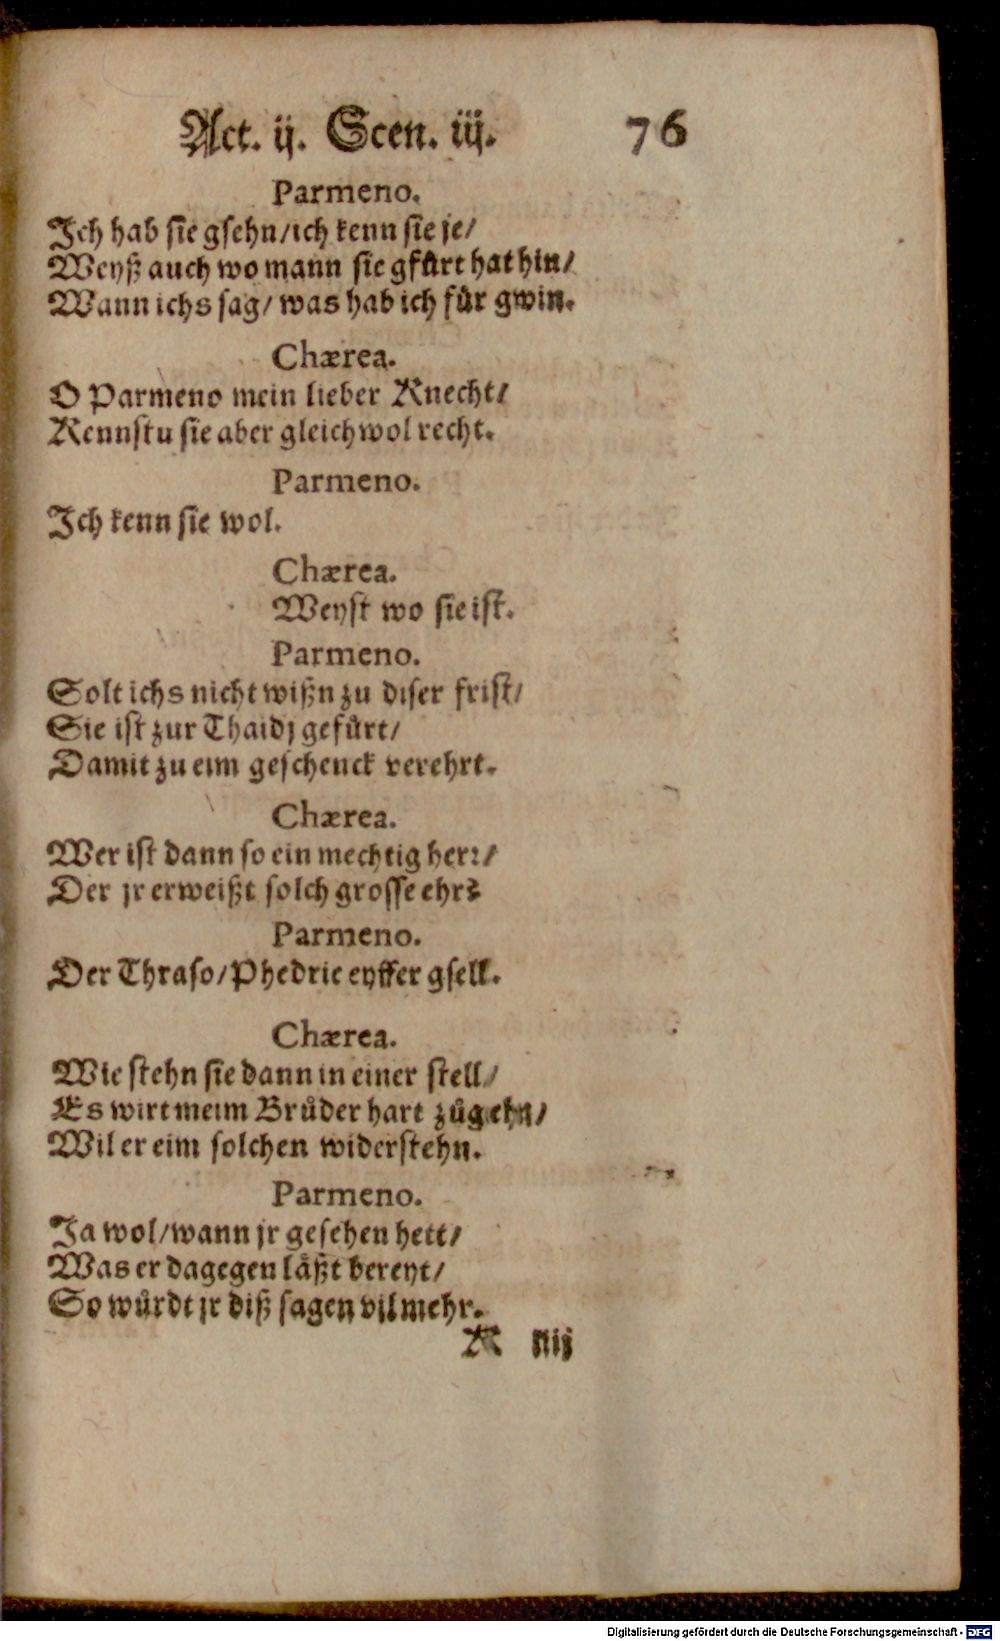 Act. ij. Scen. iij. 76
Parmeno.
Ich hab sie gsehn/ich kenn sie je/
Weyß auch wo mann sie gfůrt hat hin/
Wann ichs sag/ was hab ich fůr gwin.
Chærea.
O Parmeno mein lieber Knecht/
Kennstu sie aber gleichwol recht.
Parmeno.
Ich kenn sie wol.
Chærea.
Weyst wo sie ist.
Parmeno.
Solt ichs nicht wißn zu diser frist/
Sie ist zur Thaidj gefůrt/
Damit zu eim geschenck verehrt.
Chærea.
Wer ist dann so ein mechtig herr/
Der jr erweißt solch grosse ehr?
Parmeno.
Der Thraso/Phedrie eyffer gsell.
Chærea.
Wie stehn sie dann in einer stell/
Es wirt meim Brůder hart zůgehn/
Wil er eim solchen widerstehn.
Parmeno.
Ja wol/wann jr gesehen hett/
Was er dagegen låßt bereyt/
So wůrdt jr diß sagen vil mehr.
K iiij
Digitalisierung gefördert durch die Deutsche Forschungsgemeinschaft - DFG